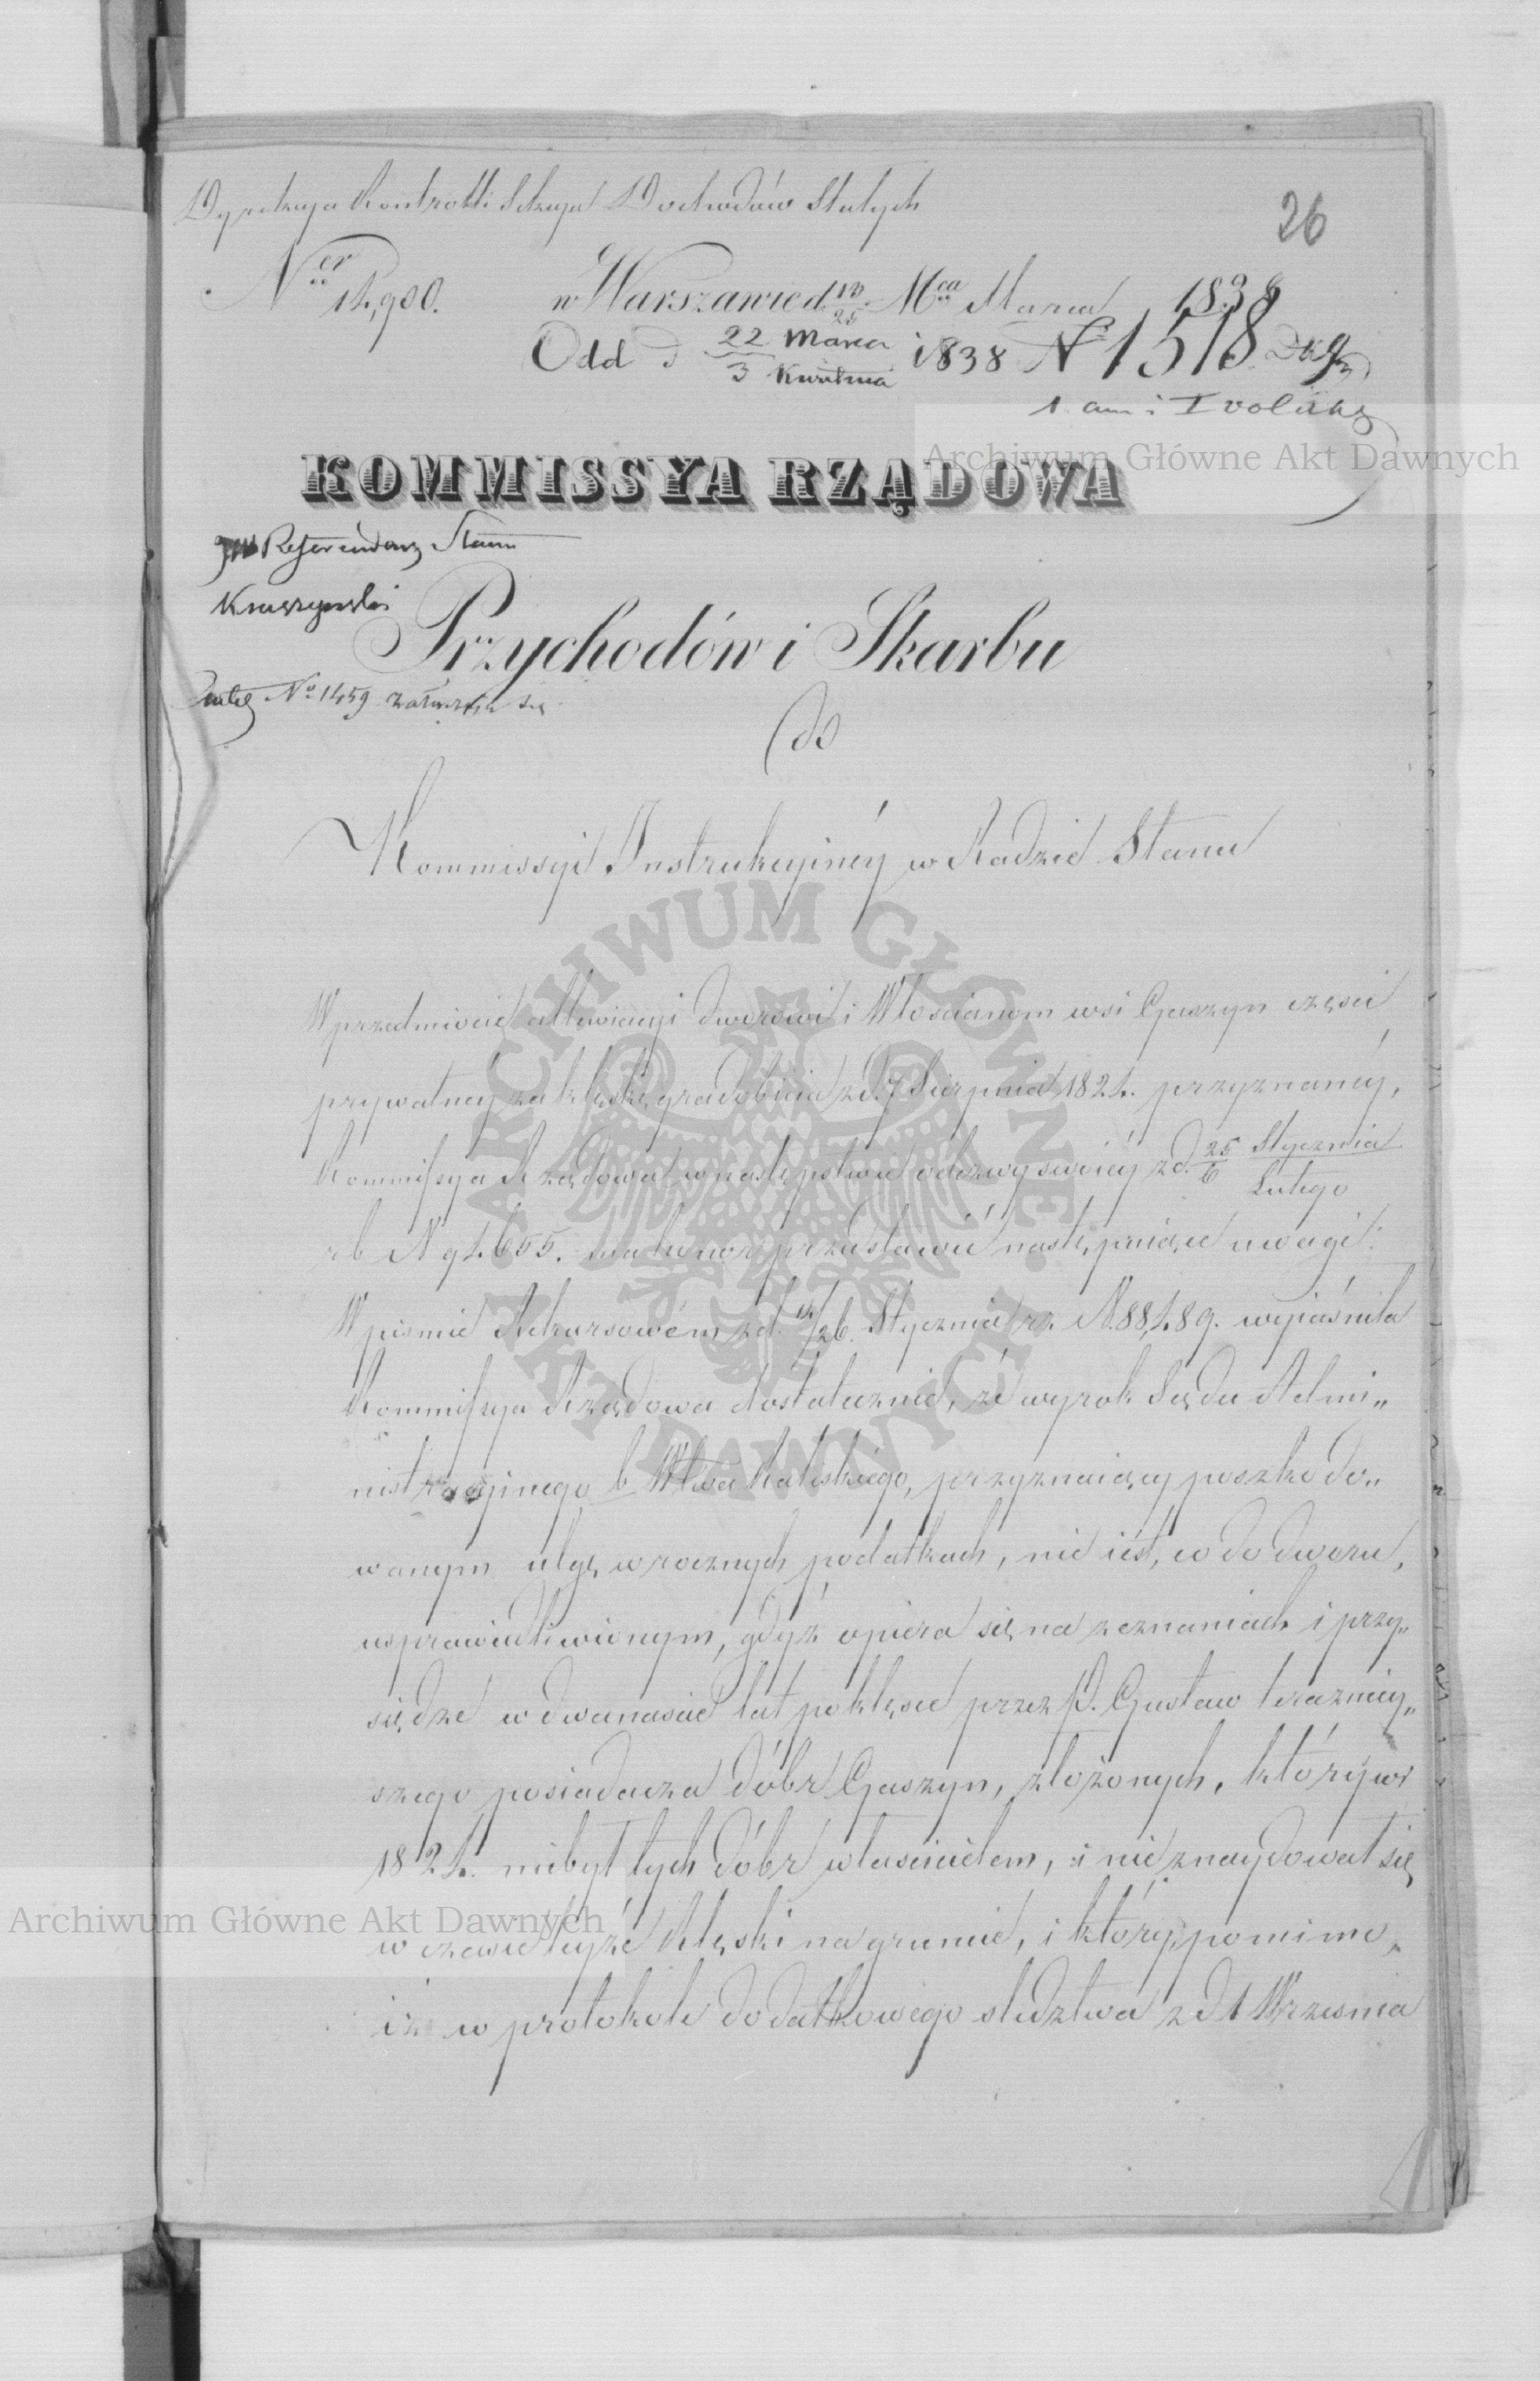 Dyrekcya Kontrolli Sekcya Dochodów Stałych
26
Ner 14,900. w Warszawie d. 13/25 Mca Marca 1838
Odd d 22 Marca / 3 Kwietnia 1838 N 1518
Archiwum Główne Akt Dawnych
KOMMISSYA RZĄDOWA
JW Referendarz Stanu
Kruszyński
Przychodów i Skarbu
No 1459 załącza się
do
Kommissyi Instrukcyinéy w Radzie Stanu
W przedmiocie allewiacyi dworowi i Włościanom wsi Gaszyn części
prywatnéy za klęskę gradobicia z d. 7 Sierpnia 1824. przyznanéy,
Kommissya Rządowa w następstwie odezwy swoiéy z d. 25 Stycznia / 6 Lutego
rb N 94655. ma honor przedstawić następuiące uwagi:
W piśmie Rekursowém z d. 14/26. Stycznia rz. N. 88,489. wyiaśniła
Kommissya Rządowa dostatecznie, że wyrok Sądu Admi„
nistracyinego b Wtwa Kaliskiego, przyznaiący poszkodo„
wanym ulgę w rocznych podatkach, nie iest, co do dworu,
usprawiedliwionym, gdyż opiera się na zeznaniach i przy„
siędze w dwanaście lat po klęsce przez P. Gustaw teraźniey„
szego posiadacza dóbr Gaszyn, złożonych, który w
1824. niebył tych dóbr właścicielem, i nie znaydował się
Archiwum Główne Akt Dawnych
w czasie teyże klęski na gruncie, i który, pomimo,
iż w protokole dodatkowego śledztwa z d 1 Września
ARCHIWUM GŁÓWNE AKT DAWNYCH